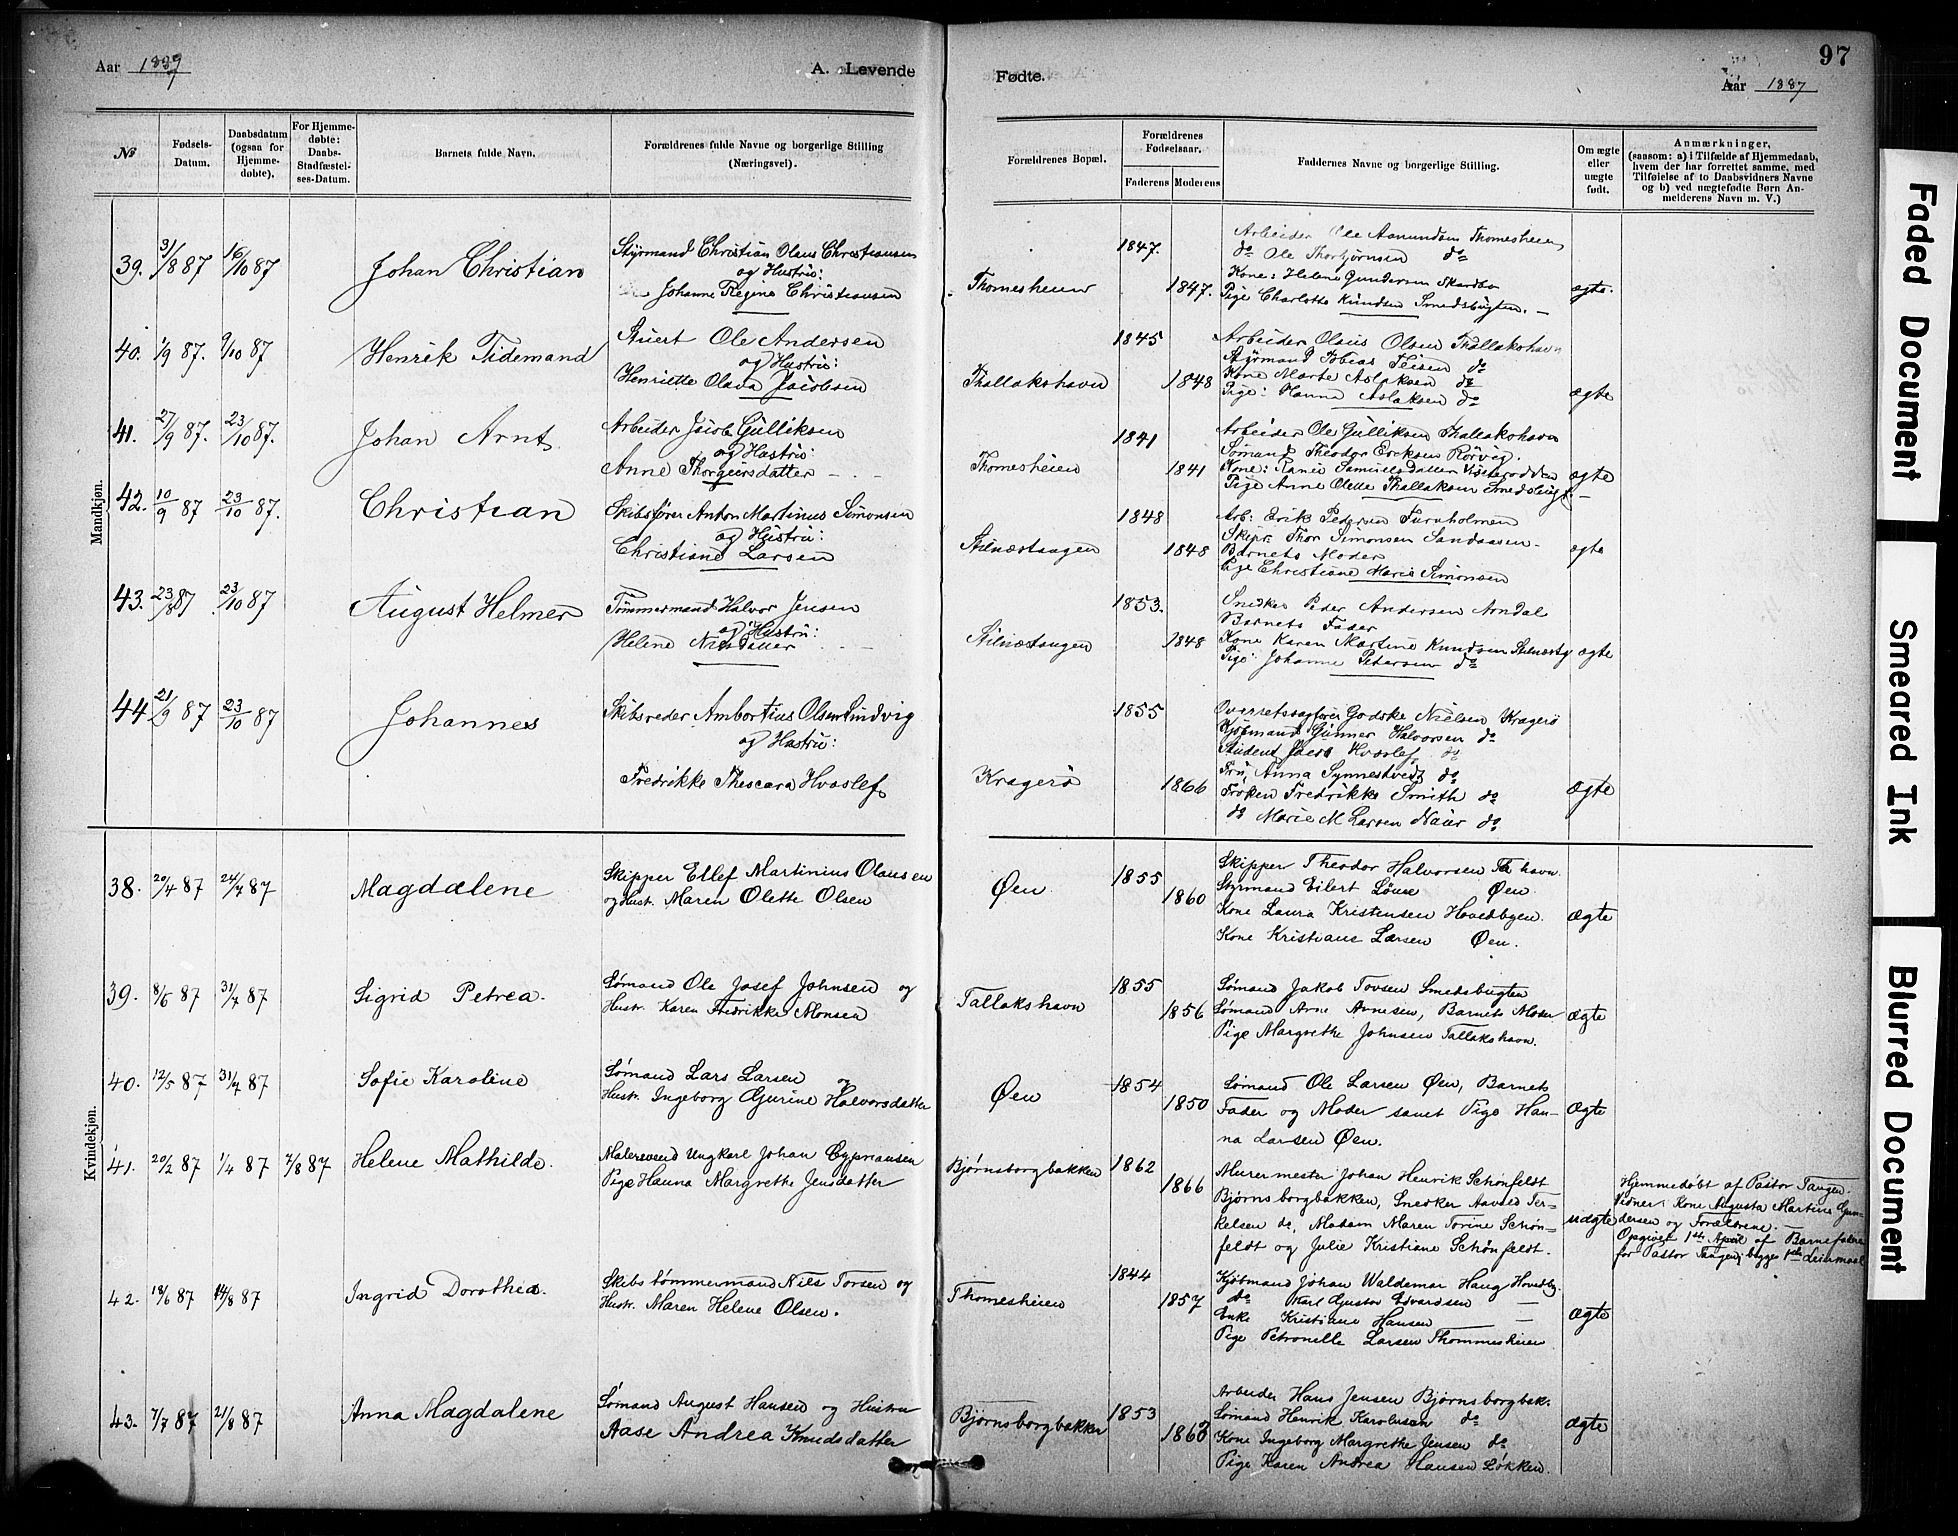 Aar 1887
A. Levende
Fødte.
97
Aar 1887
№
Fødsels-Datum.
Daabsdatum (ogsaa for Hjemmedøbte).
For Hjemmedøbte: Daabs-Stadfæstelses-Datum.
Barnets fulde Navn.
Forældrenes fulde Navne og borgerlige Stilling (Næringsvei).
Forældrenes Bopæl.
Forældrenes Fødselsaar.
Faderens Moderens
Faddernes Navne og borgerlige Stilling.
Om ægte eller uægte født.
Anmærkninger,
(saasom: a) i Tilfælde af Hjemmedaab,
hvem der har forrettet samme, med
Tilføielse af to Daabsvidners Navne
og b) ved uægtefødte Børn An-
melderens Navn m. V.)
Mandkjøn.
39. 31/8 87 16/10 87 Johan Christian
Styrmand Christian Olaus Christiansen
og Hustru:
Johanne Regine Christiansen
Thomesheien 1847. 1847.
Arbeider Ole Aanundsen Thomesheien
do Ole Thorbjørnsen do
Kone: Helene Gundersen
Pige Charlotte Knudsen Smedsbugten. —
ægte.
40. 1/9 87. 9/10 87 Henrik Tidemand
Stuert Ole Andersen
og Hustru:
Henriette Olava Jacobsen
Thallakshavn 1845 1848
Arbeider Olaus Olsen Thallakshavn
Styrmand Tobias Teisen do
Kone Marte Aslaksen do
Pige: Hanna Aslaksen do
ægte
41. 27/9 87. 23/10 87. Johan Arnt
Arbeider Jacob Gulliksen
og Hustru:
Anne Thorgeirsdatter
Thomesheien 1841 1841
Arbeider Ole Gulliksen Thallakshavn
Sømand Theodor Ericksen Rørvig.
Kone: Samuelsdatter
Pige Anne Olette Thallaksen Smedsbugt
ægte
42. 10/9 87 23/10 87. Christian
Skibsfører Anton Martinus Simonsen
og Hustru:
Christiane Larsen
Stilnestangen 1848 1848
Arb: Erik Pedersen Furuholmen
Skipr. Thor Simonsen Sandaasen.
Barnets Moder
Pige Christiane Marie Simonsen
ægte
43. 23/8 87 23/10 87 August Helmer
Tømmermand Halvor Jensen
og Hustru:
Helene Nilsdatter
Stilnestangen 1853. 1848
Snedker Peder Andersen Arndal
Barnets Fader
Kone Karen Martine Knudsen Stilnestg
Pige: Johanne Petersen do
ægte
44 21/9 87 23/10 87 Johannes
Skibsreder Ambortius Olsen Lindvig
og Hustru:
Fredrikke Thescara Hvoslef
Kragerø 1855 1866
Overretssagfører Godske Nielsen Kragerø
Kjøbmand Gunner Halvorsen do
Student Jacob Hvoslef do
Fru, Anna Synnestvedt do
Frøken Fredrikke Smith do
do Marie M Larsen Naur do
ægte
Kvindekjøn.
38. 20/4 87 24/7 87 Magdalene
Skipper Ellef Martinius Olausen
og Hust. Maren Olette Olsen
Øen 1855 1860
Skipper Theodor Halvorsen Th havn.
Styrmand Eilert Løne Øen.
Kone Laura Kristensen Hovedbyen.
Kone Kristiane Larsen Øen.
Ægte
39. 8/6 87 31/7 87 Sigrid Petrea.
Sømand Ole Josef Johnsen og
Hustr. Karen Fredrikke Monsen
Tallakshavn 1855 1856
Sømand Jakob Tovsen Smedsbugten
Sømand Arne Arnesen, Barnets Moder
Pige Margrethe Johnsen Tallakshavn.
Ægte
40. 12/5 87 31/7 87 Sofie Karoline
Sømand Lars Larsen og
Hustr. Ingeborg Gurine Halvorsdatter
Øen 1854 1850
Sømand Ole Larsen Øen, Barnets
Fader og Moder samt Pige Han-
na Larsen Øen.
Ægte
41. 20/2 87 1/4 87 7/8 87 Helene Mathilde.
Malersvend Ungkarl Johan Cyprianisen
Pige Hanna Margrethe Jensdatter
Bjørnsborgbakken 1862 1866
Murermester Johan Henrik Schønfeldt
Bjørnsborgbakken, Snedker Aavald Ter-
kelsen do, Madam Maren Torine Schøn=
feldt og Julie Kristiane Schønfeldt.
uægte
Hjemmedøbt af Pastor Tangen.
Vidner: Kone Augusta Martine Gun-
dersen og Forældrene. —
Opgivet 1ste April af Barnefaderen
for Pastor Tangen; begges 1ste Leiermaal
42. 18/6 87 14/8 87 Ingrid Dorothea.
Skibstømmermand Nils Torsen og
Hustr. Maren Helene Olsen.
Thomesheien 1844 1857
Kjøbmand Johan Waldemar Haug Hovedby.
do Karl Gustav Edvardsen —
Enke Kristiane Hansen —
Pige Petronelle Larsen Thommesheien
Ægte
43. 7/7 87 21/8 87 Anna Magdalene
Sømand August Hansen og Hustru
Aase Andrea Knudsdatter
Bjørnsborgbakken 1853 1863
Arbeider Hans Jensen Bjørnsborgbak.
Sømand Henrik Karolusen do
Kone Ingeborg Margrethe Jensen do
Pige Karen Andrea Hansen Løkken.
Ægte
Faded Document
Smeared Ink
Blurred Document